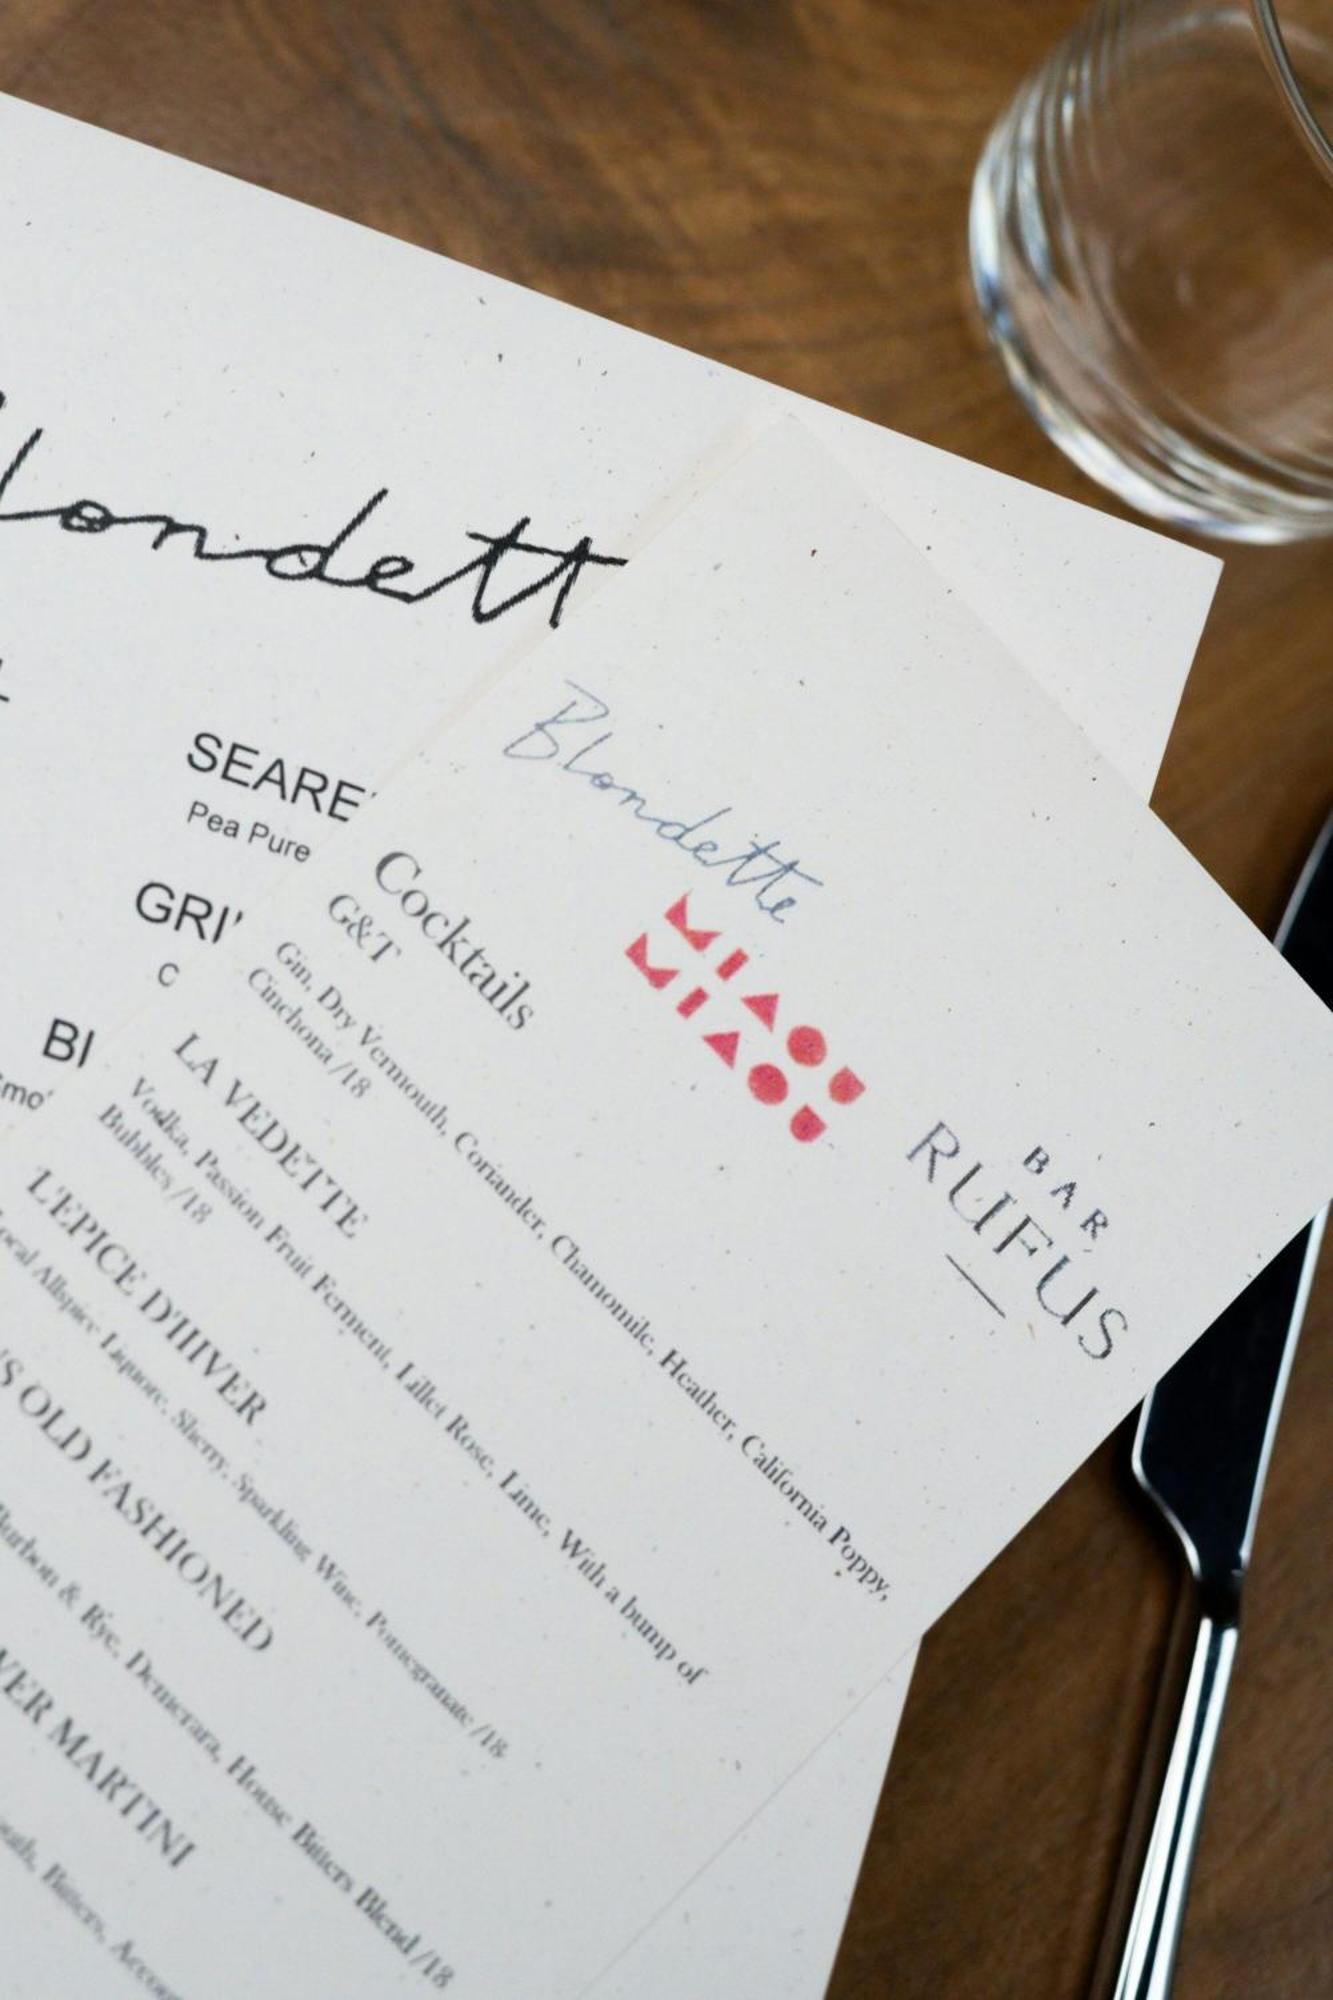 londett
SEARE
Pea Pure
GRI
BI
Blondette
MIAOU
MIAOU
BAR
RUFUS
Cocktails
G&T
Gin, Dry Vermouth, Coriander, Chamomile, Heather, California Poppy,
Cinchona /18
LA VEDETTE
Vodka, Passion Fruit Ferment, Lillet Rose, Lime, With a bump of
Bubbles /18
L'EPICE D'HIVER
ocal Allspice Liquore, Sherry, Sparkling Wine, Pomegranate /18
'S OLD FASHIONED
Burbon & Rye, Demerara, House Bitters Blend /18
VER MARTINI
outh, Bitters,